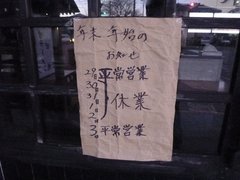 年末年始の
お知らせ
29日 平常営業
30日
31日
1日 休業
2日
3日 平常営業